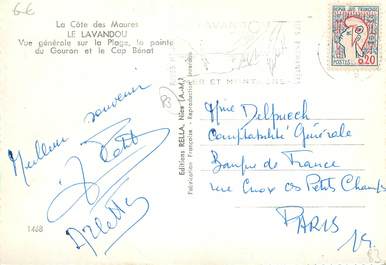 6-6
La Côte des Maures
LE LAVANDOU
Vue générale sur la Plage, la pointe
du Gouron et le Cap Bénat
Meilleur souvenir
Arlette
1468
Editions RELLA, Nice (A.-M.)
Fabrication Française - Reproduction interdite
LAVANDOU
MER ET MONTAGNE
POSTES
0,20
Mme Delpuech
Comptabilité Générale
Banque de France
rue Croix des Petits Champs
PARIS
1er